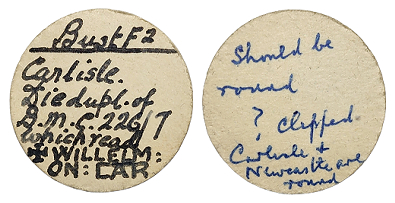 Bust F2
Carlisle.
Die dupl. of
B.M.C. 226/7
which read
+ WILLELM:
ON: CAR
Should be
round
? Clipped.
Carlisle +
Newcastle are
round